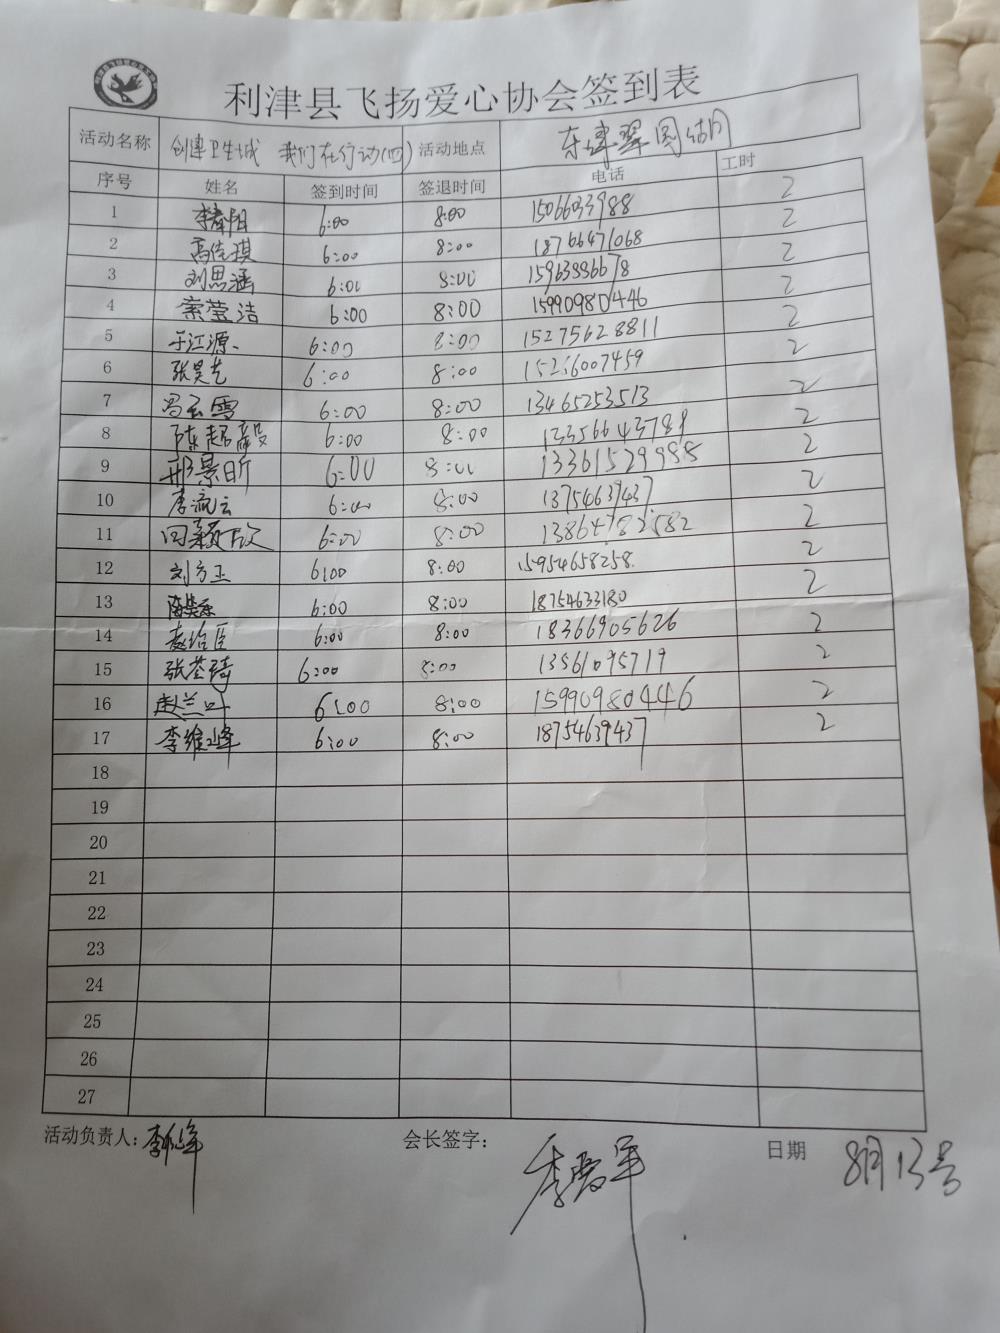 利津县飞扬爱心协会签到表
活动名称 创建卫生城 我们在行动(四) 活动地点
序号 姓名 签到时间 签退时间 电话 工时
1 6:00 8:00 15066033988 2
2 高佳琪 6:00 8:00 18766471068 2
3 刘思涵 6:00 8:00 15963886678 2
4 索莹洁 6:00 8:00 15990980446 2
5 于江源 6:00 8:00 15275628811 2
6 张昊艺 6:00 8:00 15216007459 2
7 冯云雪 6:00 8:00 13465253513 2
8 陈超毅 6:00 8:00 13356643789 2
9 邢景昕 6:00 8:00 13361529988 2
10 李流云 6:00 8:00 13754639437 2
11 8:00 6:00 2
12 刘方玉 6:00 8:00 15954658258. 2
13 6:00 8:00 18754633180 2
14 6:00 8:00 18366905626 2
15 张荃琦 6:00 8:00 13561095719 2
16 赵兰叶 6:00 8:00 15990980446 2
17 李维峰 6:00 8:00 18754639437 2
18
19
20
21
22
23
24
25
26
27
活动负责人: 会长签字: 日期 8月13号